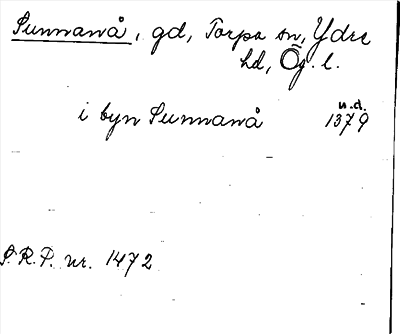 Sunnanå, gd, Torpa sn, Ydre
hd, Ög. l.
u.d.
i byn Sunnanå 1379
S.R.P. nr. 1472